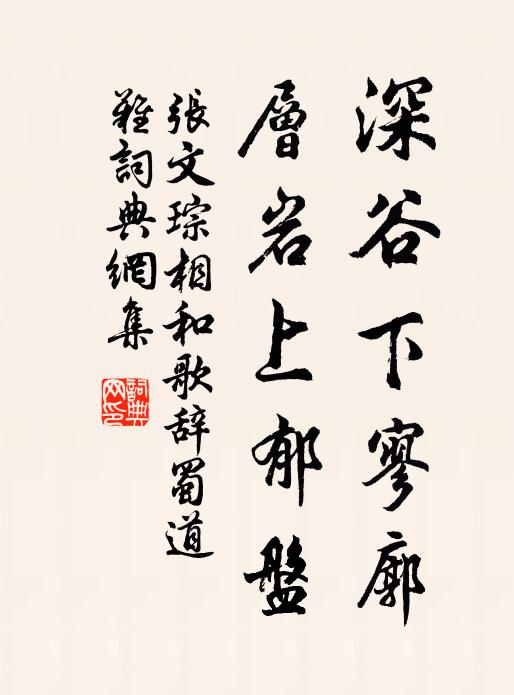 深谷下寥廓
層岩上郁盤
張文琮相和歌辞蜀道
難詞典網集
詞典网印